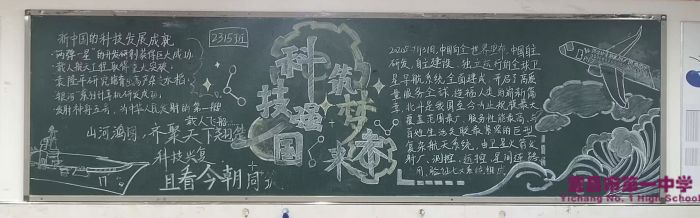 新中国的科技发展成就
2315班
"两弹一星"的研发研制获得巨大成功
载人航天工程取得重大突破
袁隆平研究
"银河"系列计算机研发成功
载人飞船
山河鸿图，齐聚天下
科技兴复
且看今朝
科技强国
筑梦未来
2020年7月31日，中国向全世界宣布，中国自主
研发、自主建设、独立运行的全球卫
星导航系统全面建成，开启了高质
量服务全球、造福人类的崭新篇
章。北斗是我国迄今为止规模最大、
覆盖范围最广、服务性能最高、与
百姓生活关联最紧密的巨型
复杂航天系统，由卫星、火箭、发
射厂、测控、运控、星间链路、
用、验证七大系统组成
宜昌市第一中学
Yichang No. 1 High School